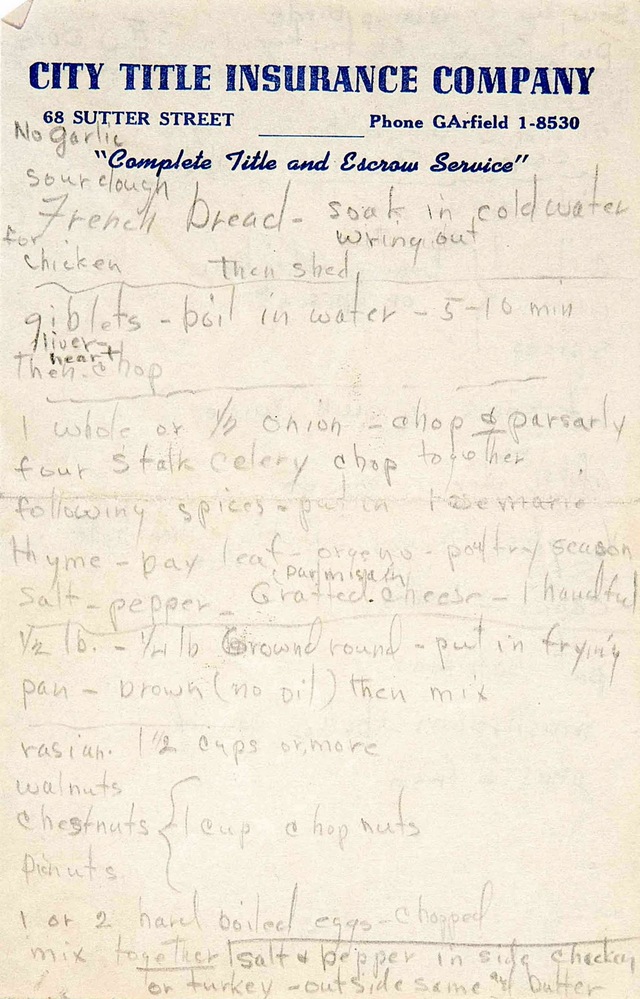 CITY TITLE INSURANCE COMPANY
68 SUTTER STREET Phone GArfield 1-8530
"Complete Title and Escrow Service"
No Garlic
sourdough
French Bread - soak in cold water
for wring out
chicken then shed
giblets - boil in water - 5-10 min
liver-
heart
then chop
1 whole or 1/2 onion - chop & parsarly
four stalk celery chop together
following spices - put in
thyme - bay leaf - oregeno - poultry season
(parmisain)
Salt - pepper - Gratted cheese - 1 handful
1/2 lb. - 1/4 lb Ground round - put in frying
pan - brown (no oil) then mix
rasian. 1 1/2 cups or more
walnuts
chestnuts { 1 cup chop nuts
pinnuts
1 or 2 hard boiled eggs - chopped
mix together salt & pepper in side chicken
or turkey - outside same and butter